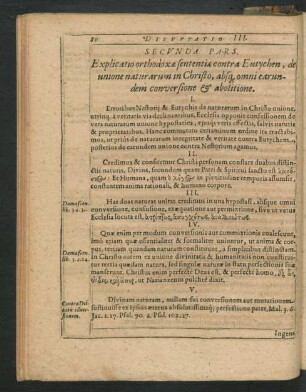 80 DISPVTATIO III.
SECVNDA PARS.
Explicatio orthodoxæ sententiæ contra Eutychen, de
unione naturarum in Christo, absq; omni earun-
dem conversione & abolitione.
I.
Erroribus Nestorij & Eutychis de naturarum in Christo unione,
utrinq; à veritatis via declinantibus, Ecclesia opponit confessionem de
vera naturarum unione hypostatica, salvis naturis
& proprietatibus. Hanc communi certaminum ordine ita tractabi-
mus, ut prius de naturarum integritate & veritate contra Eutychem,
posterius de earundem unione contra Nestorium agamus.
II.
Credimus & confitemur Christi personam constare duabus distin-
ctis naturis, Divina, secundum quam Patri & Spiritui sancto est
Et Humana, quam in plenitudine temporis assumsit,
constantem anima rationali, & humano corpore.
III.
Damascen.
lib. 3. c. 3.
Has duas naturas unitas credimus in una hypostasi, absque omni
conversione, confusione, seu permutatione, sive ut verus
Ecclesia locuta est,
IV.
Damascen.
lib. 3. c. 2.
Quæ enim per modum conversionis aut commixtionis coalescunt,
imò etiam quæ essentialiter & formaliter uniuntur, ut anima & cor-
pus, tertium quoddam naturam constituunt, à simplicibus distinctam.
In Christo autem ex unione divinitatis & humanitatis non constitui-
tur tertia quædam natura, sed singulæ, suis naturis perfectionibus sic
manserunt. Christus enim perfecte Deus est, & perfecte homo,
ut Nazianzenus pulchrè dixit.
V.
Divinam naturam, nullam sui conversionem aut mutationem
sustinuisse ex ipsius æterna absolutissimaq; perfectione patet, Mal. 3. 6.
Jac. 1. 17. Psal. 90. 2. Psal. 102. 27.
Ingens